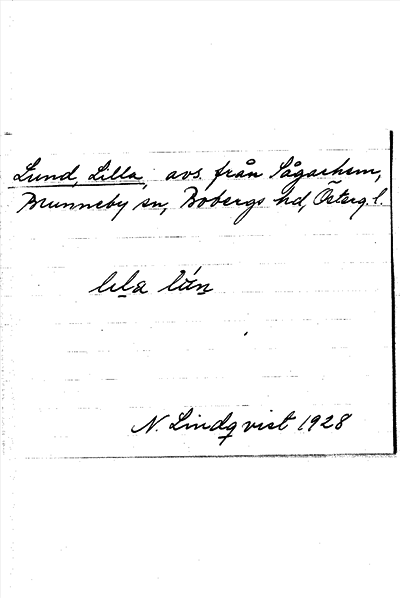 Lund, Lilla, avs. från Sågarhem,
Brunneby sn, Bobergs hd, Österg. l.
lila lún
N. Lindqvist 1928